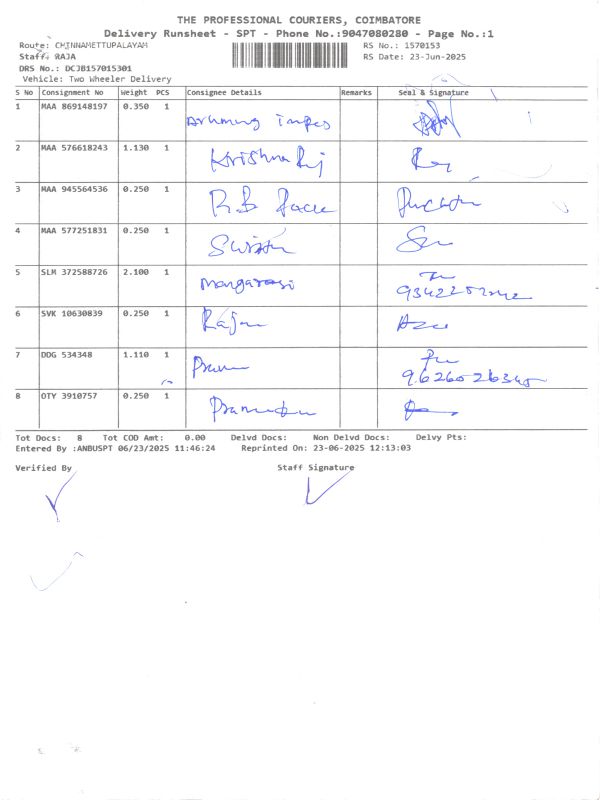 THE PROFESSIONAL COURIERS, COIMBATORE
Delivery Runsheet - SPT - Phone No.:9047080280 - Page No.:1
Route: CHINNAMETTUPALAYAM RS No.: 1570153
Staff: RAJA RS Date: 23-Jun-2025
DRS No.: DCJB157015301
Vehicle: Two Wheeler Delivery
S No Consignment No Weight PCS Consignee Details Remarks Seal & Signature
1 MAA 869148197 0.350 1
2 MAA 576618243 1.130 1 Krishna Raj
3 MAA 945564536 0.250 1 R.B
4 MAA 577251831 0.250 1
5 SLM 372588726 2.100 1 Mangarasi
6 SVK 10630839 0.250 1 Rajan
7 DDG 534348 1.110 1
9626026345
8 OTY 3910757 0.250 1
Tot Docs: 8 Tot COD Amt: 0.00 Delvd Docs: Non Delvd Docs: Delvy Pts:
Entered By :ANBUSPT 06/23/2025 11:46:24 Reprinted On: 23-06-2025 12:13:03
Verified By Staff Signature